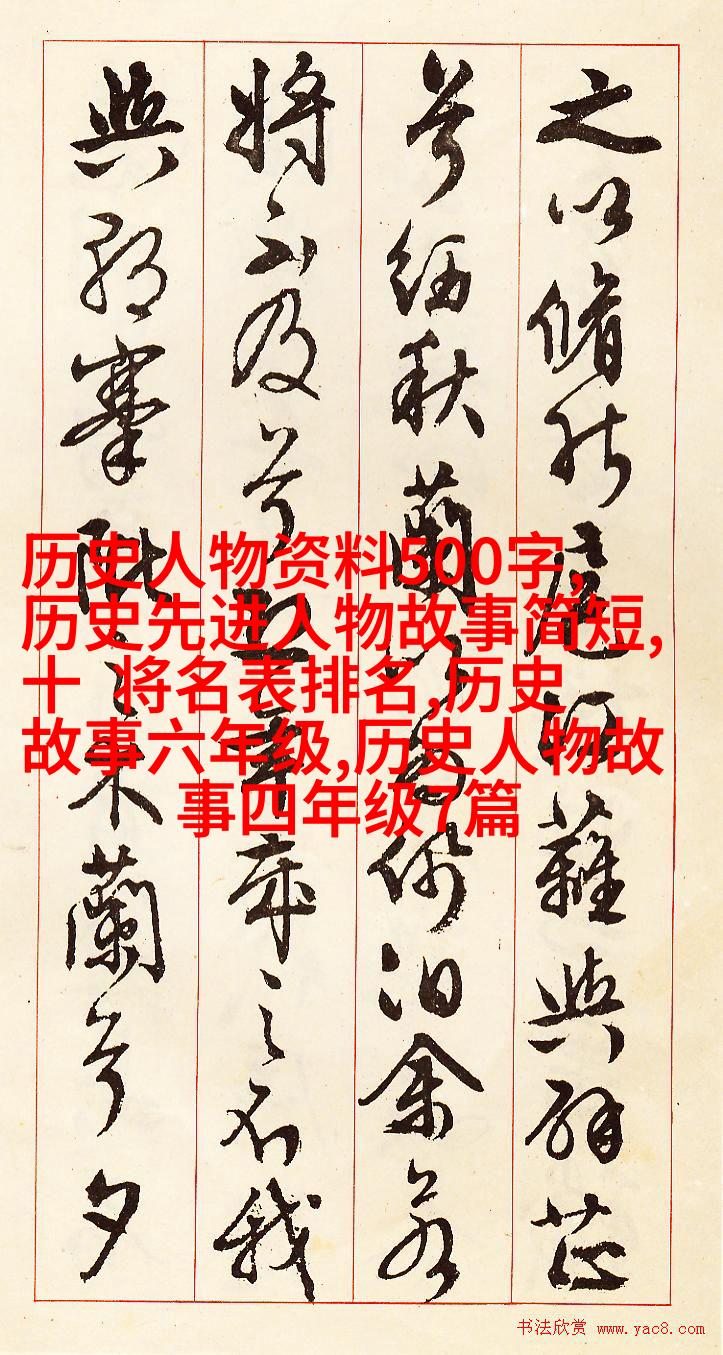 之以脩能扈江蘺與辟芷
兮紉秋蘭以為佩汩余若
將不及兮恐年歲之不我
與朝搴阰之木蘭兮夕
历史人物资料500字,
历史先进人物故事简短,
十 将名表排名,历史
故事六年级,历史人物故
事四年级7篇
书法欣赏 www.yac8.com